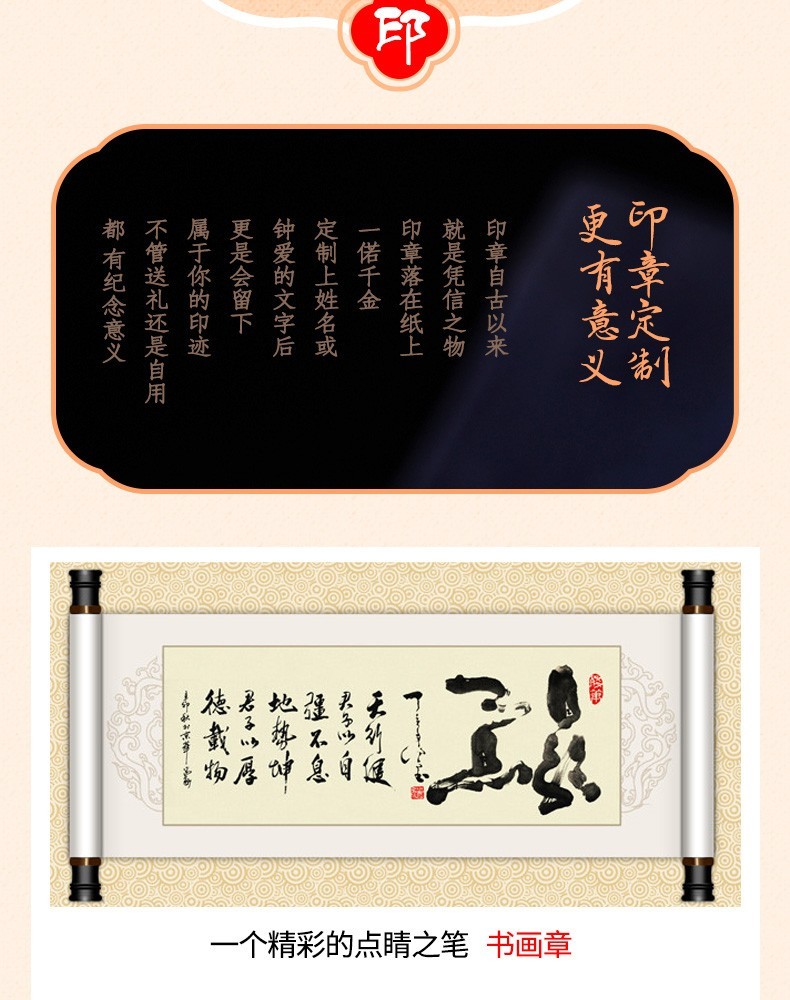 印
印章定制
更有意义
印章自古以来
就是凭信之物
印章落在纸上
一偌千金
定制上姓名或
钟爱的文字后
更是会留下
属于你的印迹
不管送礼还是自用
都有纪念意义
天行健
君子以自
强不息
地势坤
君子以厚
德载物
一个精彩的点睛之笔 书画章